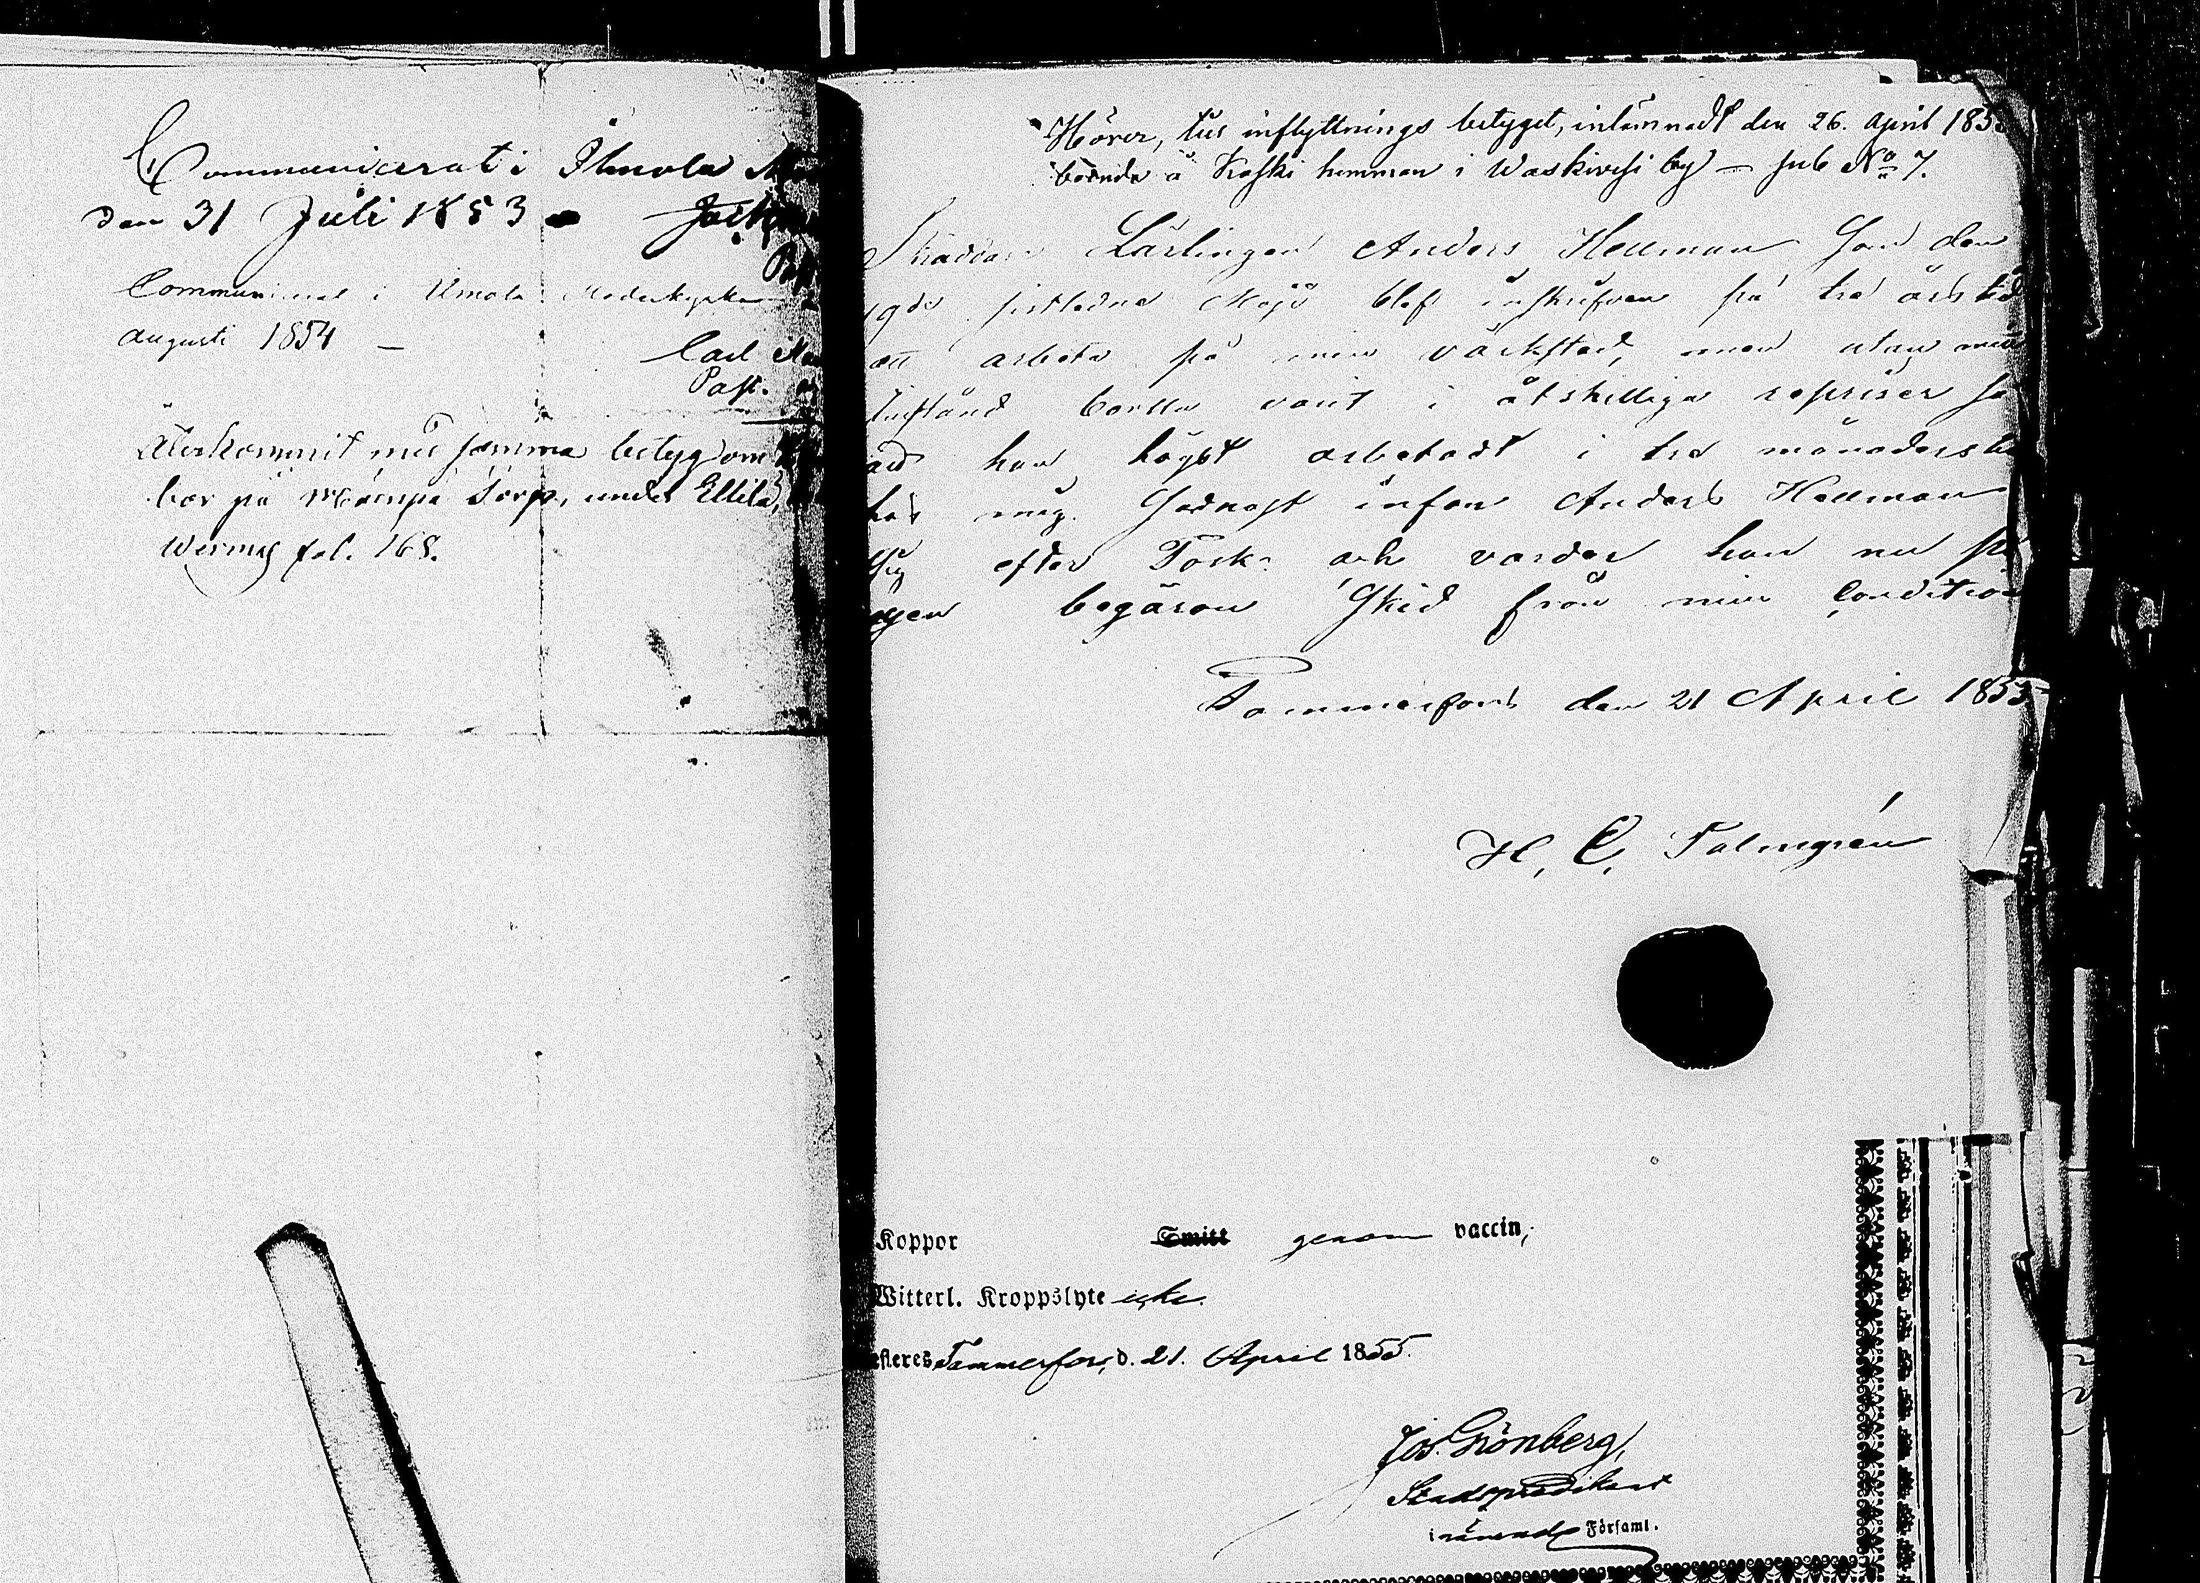 Communicerat i Ilmola
den 31 Juli 1853
Communicerat i Ilmola Moderkyrka
augusti 1854 — Carl
Past.
Återkommit med samma betyg om
bor på Mämpä Torp, under Ellilä,
Wesmas fol. 168.
Hörer, till inflyttnings betyget, inlämnadt den 26. April 185
boende å Koski hemman i Waskivesi by — sub No 7.
Skräddare Lärlingen Anders Hellman Som den
19de sistledne Majo blef inskrifven på tre års tid
att arbeta på min värkstad, men utan min
tillstånd borrta varit i åtskilliga repriser så
att han högst arbetadt i tre månaders
hos mig. Godnast infan Anders Hellman
sig efter Påsk och varder han nu på
egen begäran Skid från min Condition
Tammerfors den 21 April 1855
H. E. Palmgrén
Koppor Smitt genom vaccin;
Witterl. Kroppslyte icke.
esteres Tammerfors, d. 21. April 1855.
Jos. Grönberg,
Stadspredikant
i nämnde Församl.